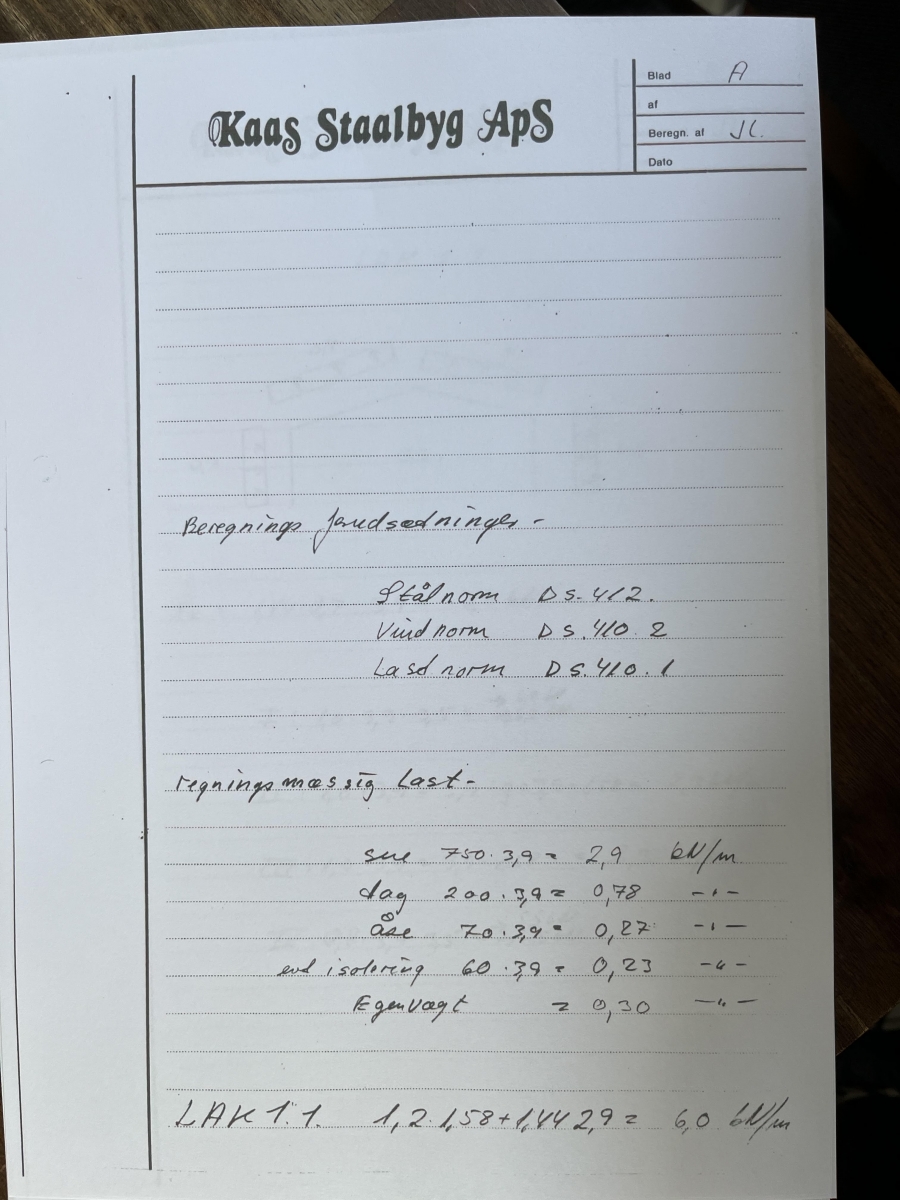 Kaas Staalbyg ApS
Blad A
af
Beregn. af JL.
Dato
Beregnings forudsætninger -
Stålnorm DS. 412.
Vindnorm DS. 410. 2
Lastnorm DS. 410. 1
regningsmæssig Last -
sne 750 · 3,9 = 2,9 kN/m
tag 200 · 3,9 = 0,78 -"-
åse 70 · 3,9 = 0,27 -"-
evt isolering 60 · 3,9 = 0,23 -"-
Egenvægt = 0,30 -"-
LAK 1.1. 1,2·1,58+1,44·2,9 = 6,0 kN/m